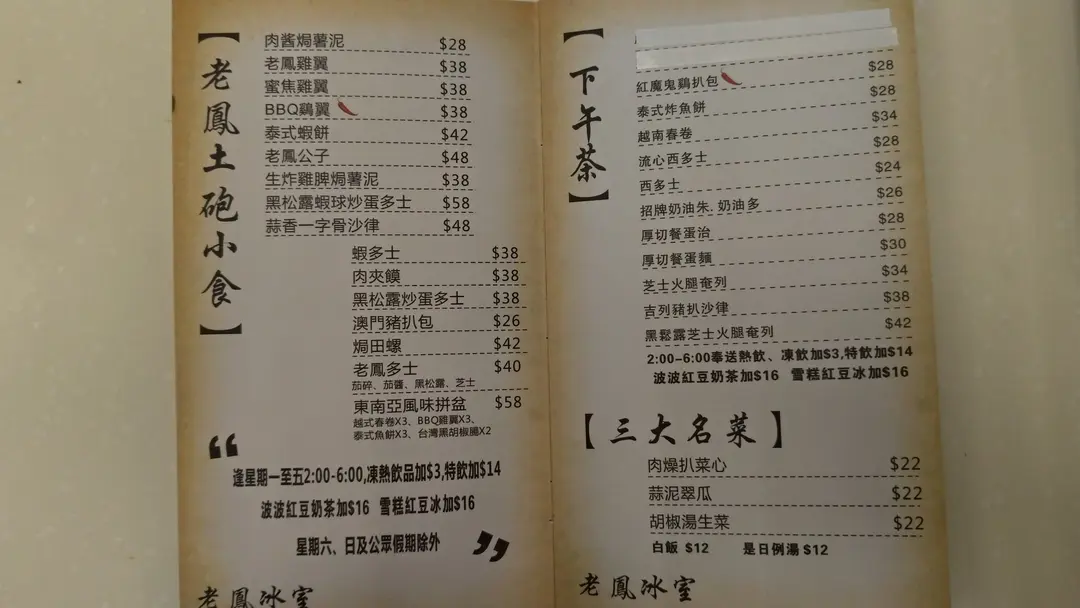 【老鳳土砲小食】
肉醬焗薯泥 $28
老鳳雞翼 $38
蜜焦雞翼 $38
BBQ鷄翼 $38
泰式蝦餅 $42
老鳳公子 $48
生炸雞脾焗薯泥 $38
黑松露蝦球炒蛋多士 $58
蒜香一字骨沙律 $48
蝦多士 $38
肉夾饃 $38
黑松露炒蛋多士 $38
澳門豬扒包 $26
焗田螺 $42
老鳳多士 $40
茄碎、茄醬、黑松露、芝士
東南亞風味拼盆 $58
越式春卷X3、BBQ雞翼X3、
泰式魚餅X3、台灣黑胡椒腸X2
“
逢星期一至五2:00-6:00,凍熱飲品加$3,特飲加$14
波波紅豆奶茶加$16 雪糕紅豆冰加$16
星期六、日及公眾假期除外
”
老鳳冰室
【下午茶】
紅魔鬼鷄扒包 $28
泰式炸魚餅 $28
越南春卷 $34
流心西多士 $28
西多士 $24
招牌奶油朱.奶油多 $26
厚切餐蛋治 $28
厚切餐蛋麵 $30
芝士火腿奄列 $34
吉列豬扒沙律 $38
黑鬆露芝士火腿奄列 $42
2:00-6:00奉送熱飲、凍飲加$3,特飲加$14
波波紅豆奶茶加$16 雪糕紅豆冰加$16
【三大名菜】
肉燥扒菜心 $22
蒜泥翠瓜 $22
胡椒湯生菜 $22
白飯 $12 是日例湯 $12
老鳳冰室